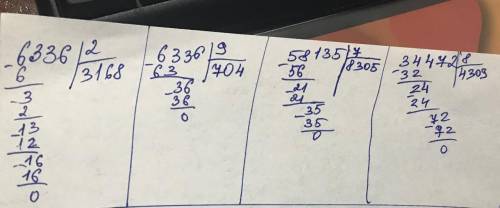 -6336 | 2
6 | 3168
-3
2
-13
12
-16
16
0
-6336 | 9
63 | 704
-36
36
0
-58135 | 7
56 | 8305
-21
21
-35
35
0
-34472 | 8
32 | 4309
-24
24
-72
72
0